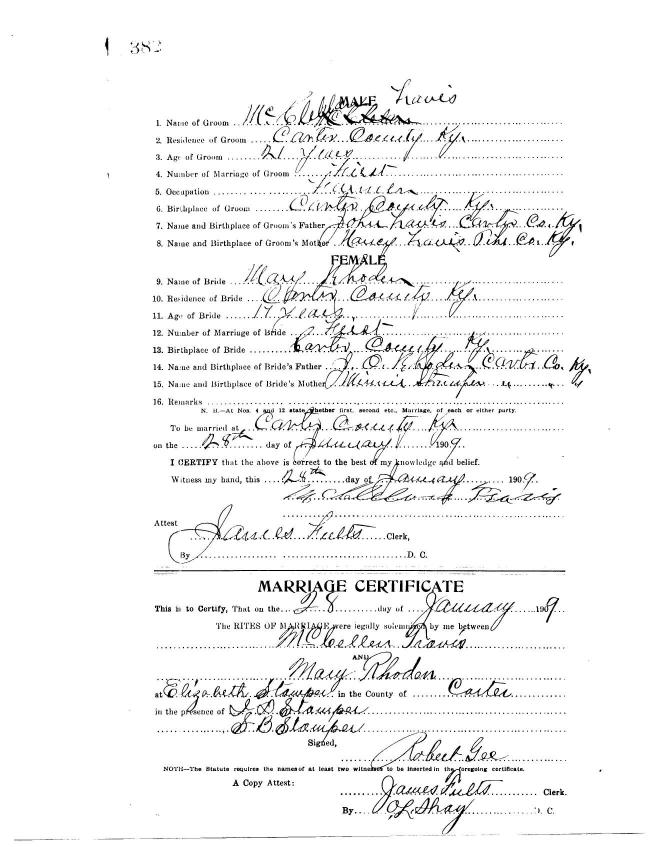 382
MALE Travis
1. Name of Groom McClellen
2. Residence of Groom Carter County Ky.
3. Age of Groom 21 Years
4. Number of Marriage of Groom First
5. Occupation Farmer
6. Birthplace of Groom Carter County Ky.
7. Name and Birthplace of Groom's Father John Travis Carter Co. Ky.
8. Name and Birthplace of Groom's Mother Nancy Travis Pike Co. Ky.
FEMALE
9. Name of Bride Mary Rhoden
10. Residence of Bride Carter County Ky.
11. Age of Bride 17 Years
12. Number of Marriage of Bride First
13. Birthplace of Bride Carter County Ky.
14. Name and Birthplace of Bride's Father J. O. Rhoden Carter Co. Ky.
15. Name and Birthplace of Bride's Mother Minnie Stamper " "
16. Remarks
N. B.—At Nos. 4 and 12 state whether first, second etc., Marriage, of each or either party.
To be married at Carter County Ky
on the 28th day of January 1909.
I CERTIFY that the above is correct to the best of my knowledge and belief.
Witness my hand, this 28th day of January 1909.
Travis
Attest James Fults Clerk,
By D. C.
MARRIAGE CERTIFICATE
This is to Certify, That on the 28 day of January 1909
The RITES OF MARRIAGE were legally solemnized by me between
McCellen Travis
AND
Mary Rhoden
at Elizabeth Stamper in the County of Carter
in the presence of S. D. Stamper
S B Stamper
Signed,
Robert Gee
NOTE—The Statute requires the names of at least two witnesses to be inserted in the foregoing certificate.
A Copy Attest:
James Fults Clerk.
By O L Shay D. C.